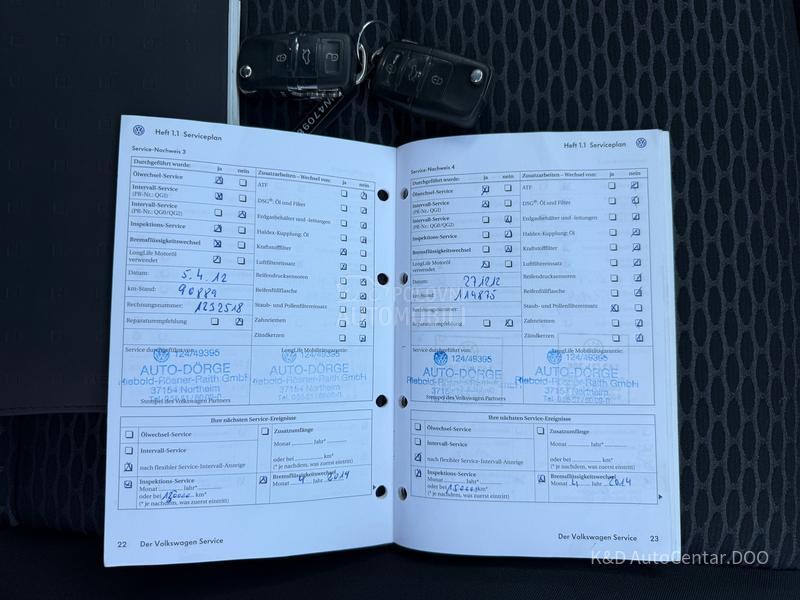 Heft 1.1 Serviceplan
Service-Nachweis 3
Durchgeführt wurde: ja nein
Ölwechsel-Service
Intervall-Service
(PR-Nr.: QG1)
Intervall-Service
(PR-Nr.: QG0/QG2)
Inspektions-Service
Bremsflüssigkeitswechsel
LongLife Motoröl
verwendet
Datum: 5.4.12
km-Stand: 90889
Rechnungsnummer: 1232518
Reparaturempfehlung
Zusatzarbeiten – Wechsel von: ja nein
ATF
DSG®: Öl und Filter
Erdgasbehälter und -leitungen
Haldex-Kupplung: Öl
Kraftstofffilter
Luftfiltereinsatz
Reifendrucksensoren
Reifenfüllflasche
Staub- und Pollenfiltereinsatz
Zahnriemen
Zündkerzen
Service durchgeführt von:
124/49395
AUTO-DÖRGE
Riebold-Rösner-Raith GmbH
37154 Northeim
Stempel des Volkswagen Partners
LongLife Mobilitätsgarantie:
124/49395
AUTO-DÖRGE
Riebold-Rösner-Raith GmbH
37154 Northeim
Ihre nächsten Service-Ereignisse
Ölwechsel-Service
Intervall-Service
nach flexibler Service-Intervall-Anzeige
Zusatzumfänge
Monat Jahr*
oder bei km*
(* je nachdem, was zuerst eintritt)
Inspektions-Service
Monat Jahr*
oder bei km*
(* je nachdem, was zuerst eintritt)
Bremsflüssigkeitswechsel
Monat 4 Jahr 2014
22 Der Volkswagen Service
Heft 1.1 Serviceplan
Service-Nachweis 4
Durchgeführt wurde: ja nein
Ölwechsel-Service
Intervall-Service
(PR-Nr.: QG1)
Intervall-Service
(PR-Nr.: QG0/QG2)
Inspektions-Service
Bremsflüssigkeitswechsel
LongLife Motoröl
verwendet
Datum:
km-Stand: 114875
Rechnungsnummer:
Reparaturempfehlung
Zusatzarbeiten – Wechsel von: ja nein
ATF
DSG®: Öl und Filter
Erdgasbehälter und -leitungen
Haldex-Kupplung: Öl
Kraftstofffilter
Luftfiltereinsatz
Reifendrucksensoren
Reifenfüllflasche
Staub- und Pollenfiltereinsatz
Zahnriemen
Zündkerzen
Service durchgeführt von:
124/49395
AUTO-DÖRGE
Riebold-Rösner-Raith GmbH
37154 Northeim
Stempel des Volkswagen Partners
LongLife Mobilitätsgarantie:
124/49395
AUTO-DÖRGE
Riebold-Rösner-Raith GmbH
37154 Northeim
Ihre nächsten Service-Ereignisse
Ölwechsel-Service
Intervall-Service
nach flexibler Service-Intervall-Anzeige
Zusatzumfänge
Monat Jahr*
oder bei km*
(* je nachdem, was zuerst eintritt)
Inspektions-Service
Monat Jahr*
oder bei km*
(* je nachdem, was zuerst eintritt)
Bremsflüssigkeitswechsel
Monat 4 Jahr 2014
Der Volkswagen Service 23
K&D AutoCentar.DOO